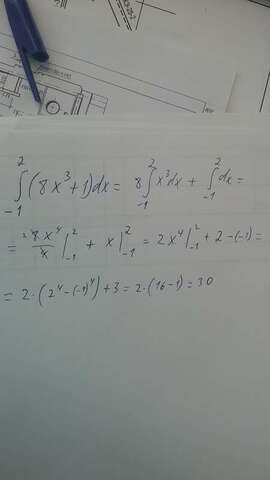 ∫₋₁² (8x³+1)dx = 8∫₋₁² x³dx + ∫₋₁² dx =
= 8x⁴/4 |₋₁² + x |₋₁² = 2x⁴ |₋₁² + 2-(-1) =
= 2·(2⁴-(-1)⁴)+3 = 2·(16-1) = 30